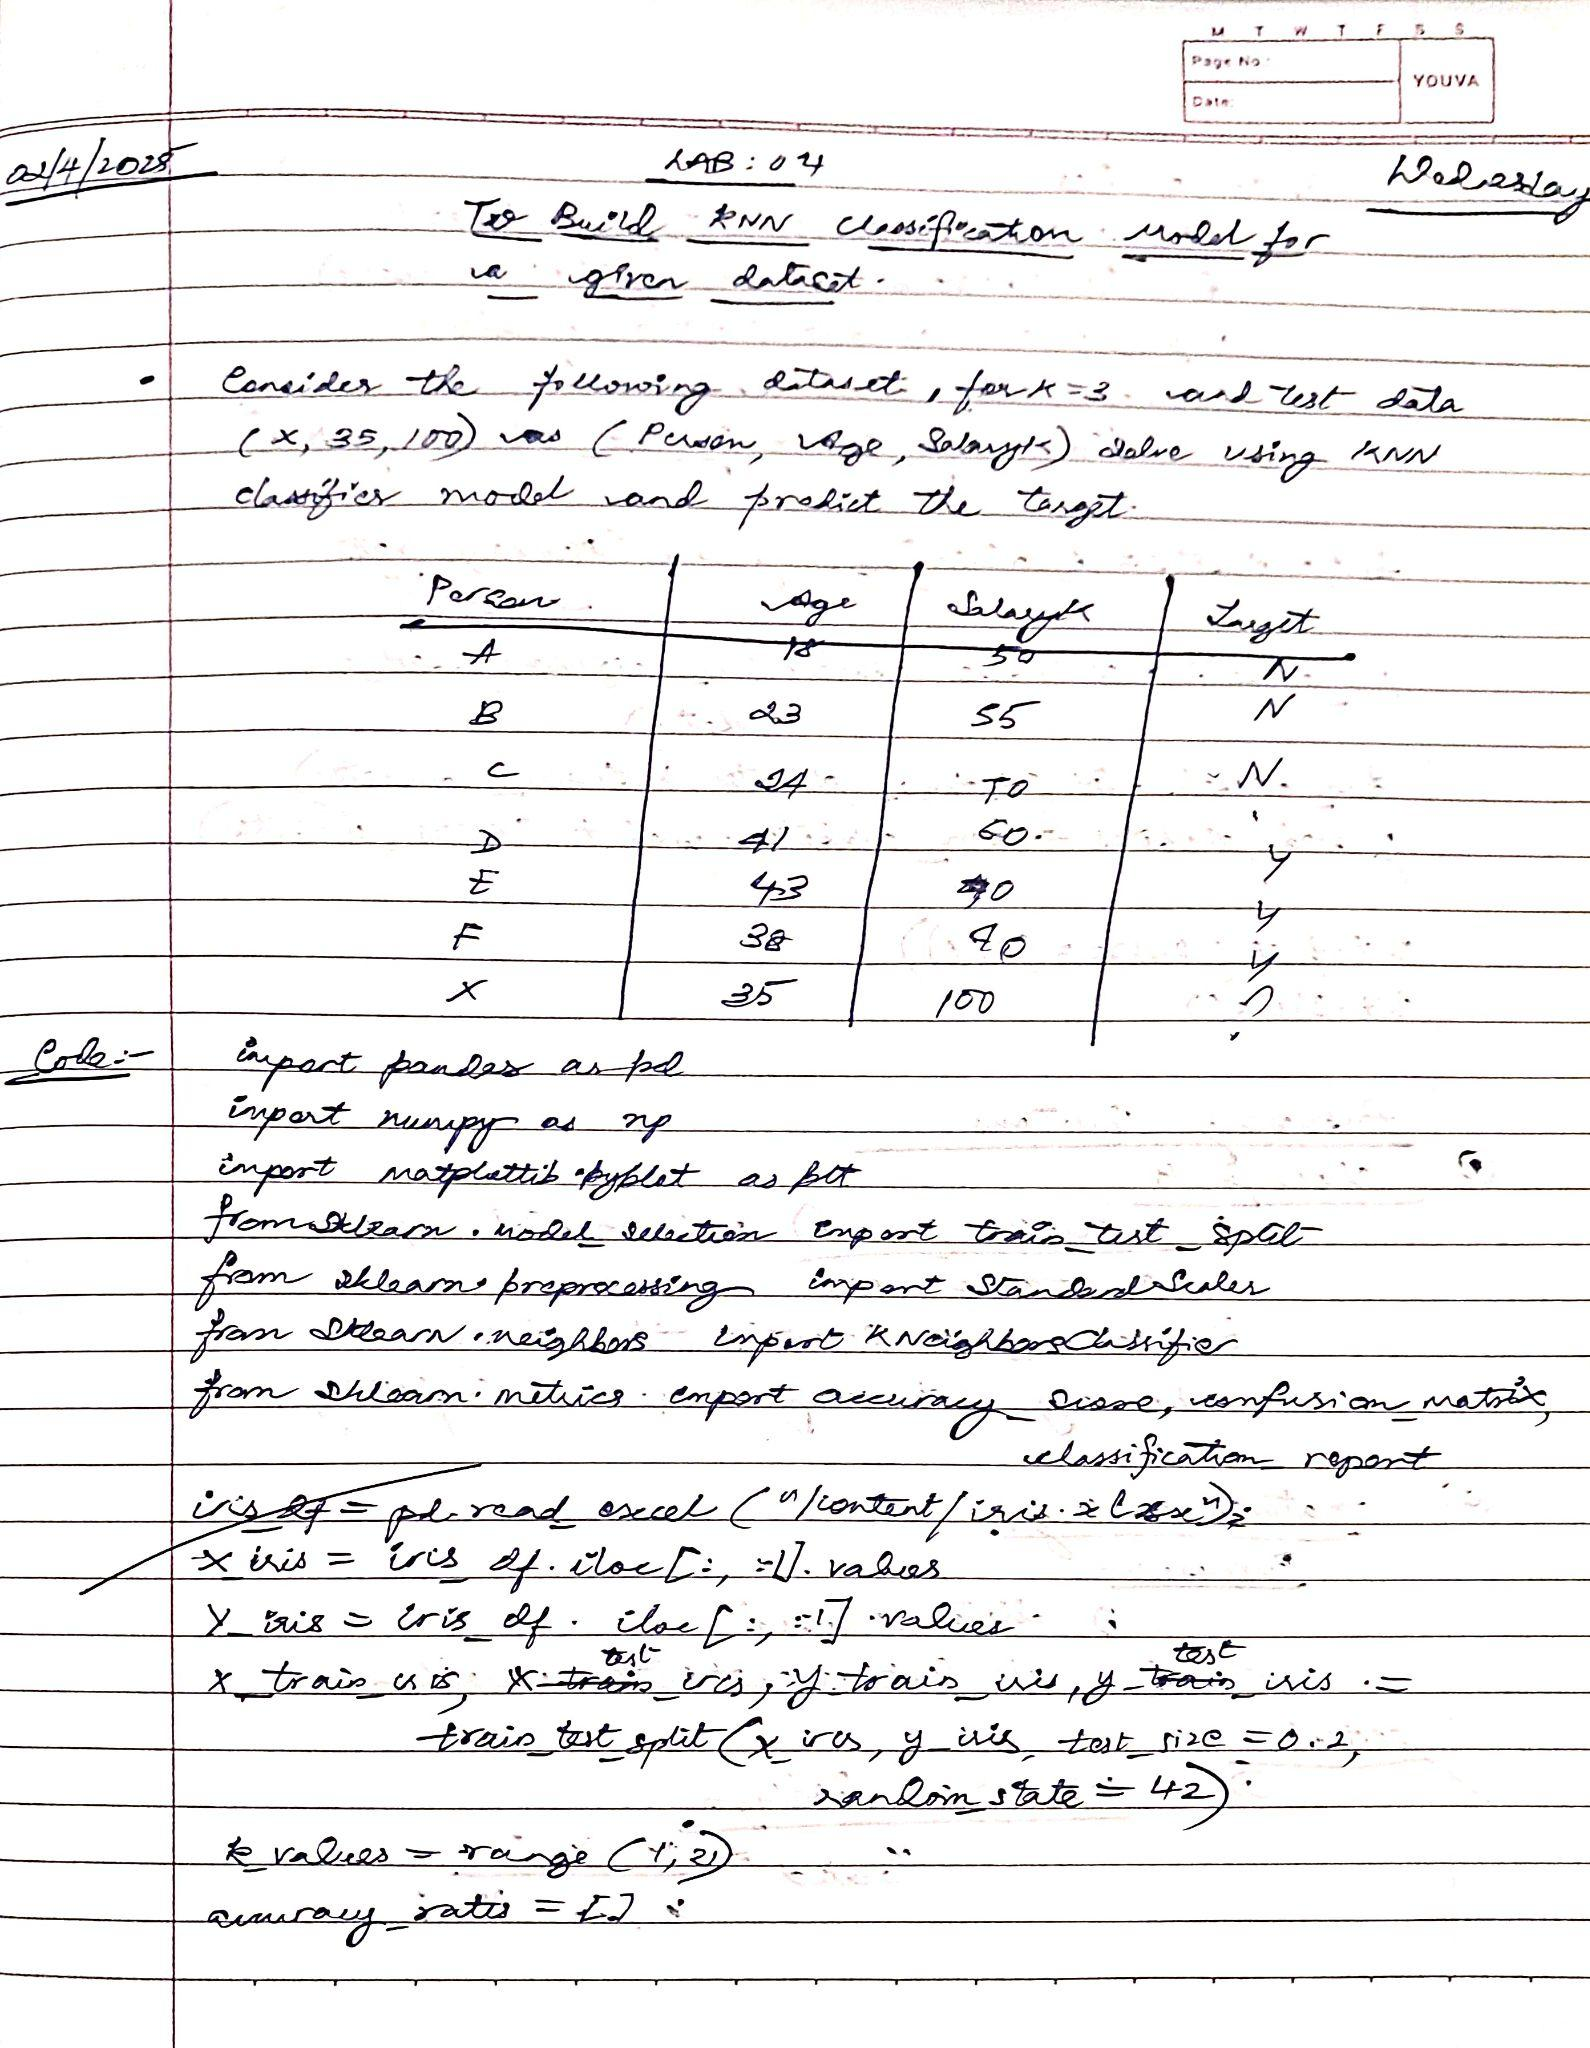 M T W T F S S
Page No:
YOUVA
Date:
02/4/2025
LAB: 04
Wednesday
To Build KNN Classification Model for
a given dataset.
• Consider the following dataset, for K=3 and test data
(X, 35, 100) as (Person, Age, SalaryK) solve using KNN
classifier model and predict the target.
Person Age SalaryK Target
A 18 50 N
B 23 55 N
C 24 70 N
D 41 60 Y
E 43 70 Y
F 38 40 Y
X 35 100 ?
Code:-
import pandas as pd
import numpy as np
import matplotlib.pyplot as plt
from sklearn.model_selection import train_test_split
from sklearn.preprocessing import StandardScaler
from sklearn.neighbors import KNeighborsClassifier
from sklearn.metrics import accuracy_score, confusion_matrix,
classification_report
iris_df = pd.read_excel ("/content/iris.xlsx");
x_iris = iris_df.iloc[:, :-1].values
y_iris = iris_df.iloc[:, :-1].values
x_train_iris, x_test_iris, y_train_iris, y_test_iris =
train_test_split(x_iris, y_iris, test_size = 0.2,
random_state = 42)
k_values = range (1, 21)
accuracy_rates = []